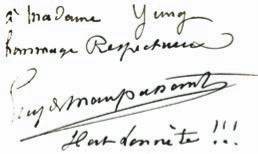 à Madame Yung
hommage Respectueux
Guy de Maupassant